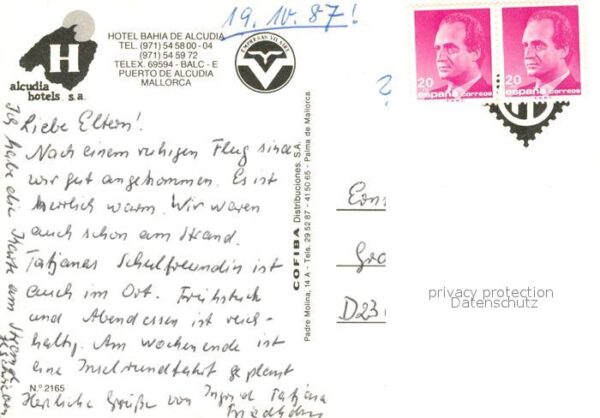 19. IV. 87!
HOTEL BAHIA DE ALCUDIA
TEL. (971) 54 58 00 - 04
(971) 54 59 72
TELEX. 69594 - BALC - E
PUERTO DE ALCUDIA
MALLORCA
H
alcudia
hotels, s.a.
EMPRESAS
V
20
españa correos
20
españa correos
?
Liebe Eltern!
Nach einem ruhigen Flug sind
wir gut angekommen. Es ist
herrlich warm. Wir waren
auch schon am Strand.
Tatjanas Schulfreundin ist
auch im Ort. Frühstück
und Abendessen ist reich-
haltig. Am Wochenende ist
eine Inselrundfahrt geplant
Herzliche Grüße von Ingrid Tatjana
Ich habe die Karte am Strand
geschrieben
N.º 2165
COFIBA Distribuciones, S.A.
Padre Molina, 14 A - Tels. 29 52 87 - 41 50 65 - Palma de Mallorca
D23
privacy protection
Datenschutz